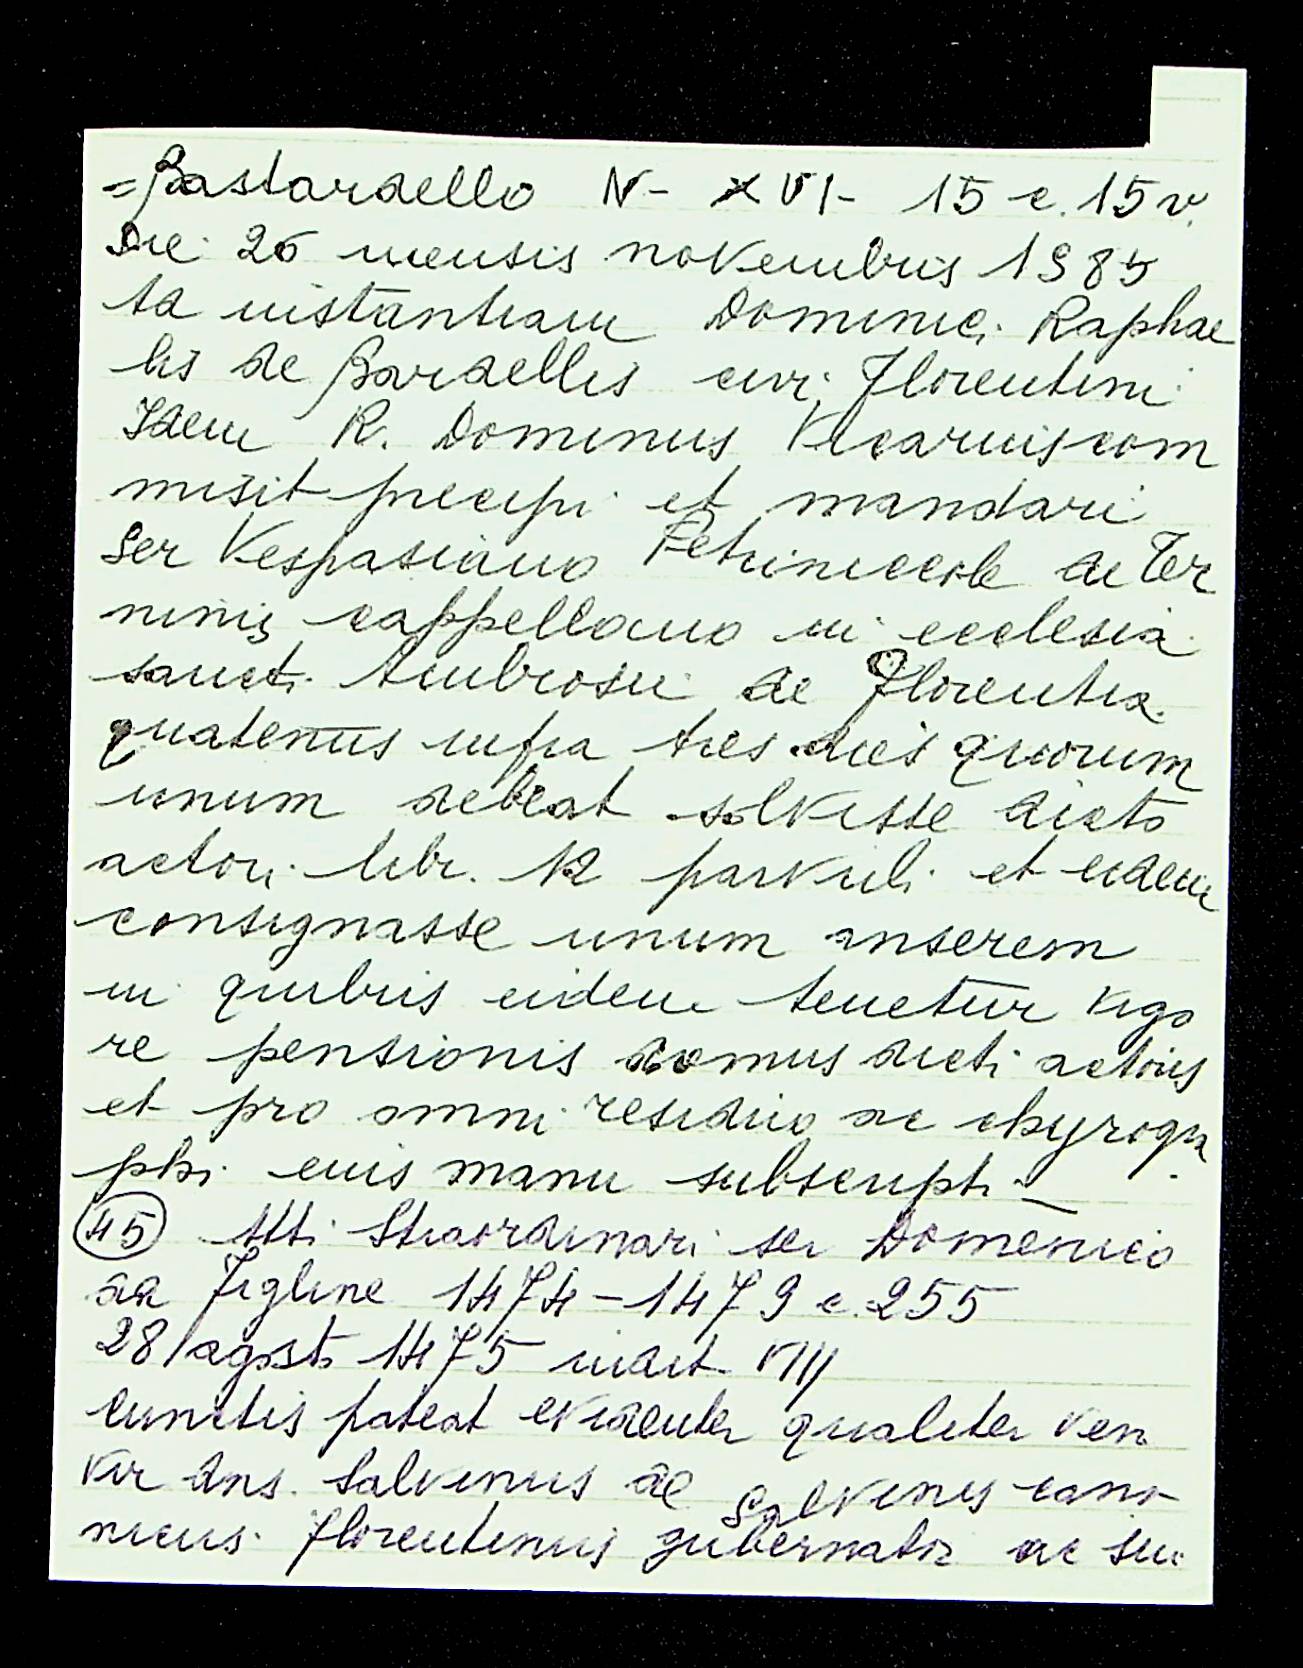 = Bastardello N- XVI- 15 c. 15 v.
Die 26 mensis novembris 1985
ta instantiam Dominici Raphae
lis de Bardellis civi Florentini
Idem R. Dominus Vicarius com
misit precipi et mandari
Ser Vespasiano Petriniccole de Ter
ninis cappellano in ecclesia
sancti Ambrosii de Florentia
quatenus infra tres dies quorum
unum debeat solvisse dicto
actori libr. 12 parvuli et eidem
consignasse unum anserem
in quibus eidem tenetur vigo
re pensionis domus dicti actoris
et pro omni residuo ac chyrogra
phi eius manu subscripti -
(45) Atti Straordinari ser Domenico
da Figline 1474-1479 c. 255
28 agosto 1475 indit VIII
Cunctis pateat evidenter qualiter ven
vir dns. Salvinus de Salvinis cano
nicus Florentinus gubernator ac sin